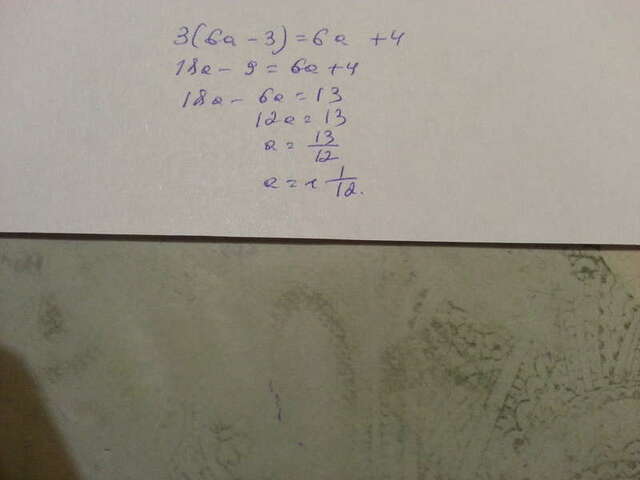 3(6a - 3) = 6a + 4
18a - 9 = 6a + 4
18a - 6a = 13
12a = 13
a = 13/12
a = 1 1/12.